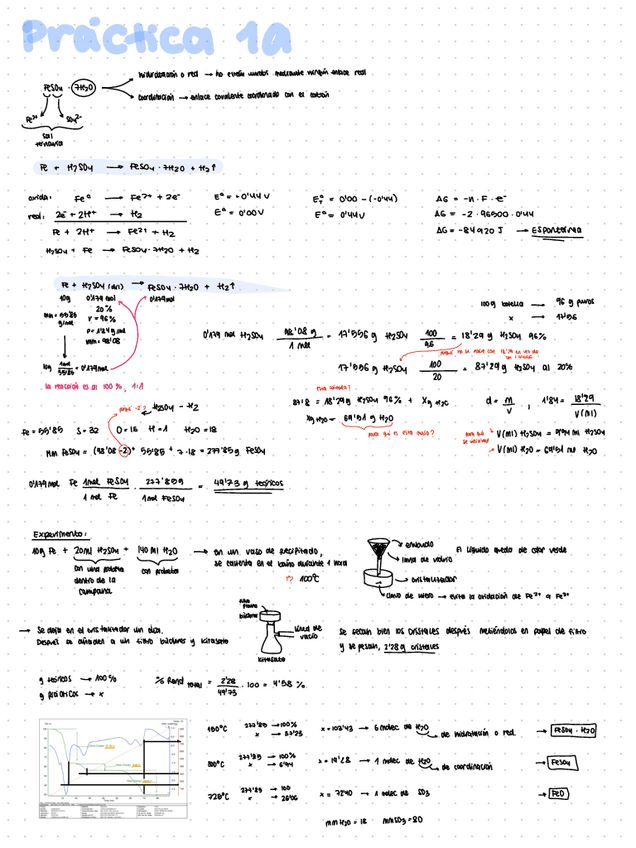 Práctica 1A
hidratación o red → no están unidos mediante ningún enlace real
FeSO₄ · 7H₂O
coordinación → enlace covalente coordinado con el catión
Fe²⁺ SO₄²⁻
sal
ternaria
Fe + H₂SO₄ → FeSO₄ · 7H₂O + H₂↑
oxida: Fe⁰ → Fe²⁺ + 2e⁻ E⁰ = -0'44 V E⁰ = 0'00 - (-0'44) ΔG = -n · F · e⁻
red: 2e⁻ + 2H⁺ → H₂ E⁰ = 0'00 V E⁰ = 0'44 V ΔG = -2 · 96500 · 0'44
Fe + 2H⁺ → Fe²⁺ + H₂ ΔG = -84920 J → Espontánea
H₂SO₄ + Fe → FeSO₄ · 7H₂O + H₂
Fe + H₂SO₄ (dil) → FeSO₄ · 7H₂O + H₂↑
10g 0'179 mol 0'179 mol
20%
mm = 55'85 g/mol r = 96%
ρ = 1'84 g/ml
mm = 98'08
10g · 1mol / 55'85 = 0'179 mol
la reacción es al 100%, 1:1
100g botella → 96 g puros
x → 17'56
0'179 mol H₂SO₄ · 98'08 g / 1 mol = 17'556 g H₂SO₄ · 100 / 96 = 18'29 g H₂SO₄ 96%
17'556 g H₂SO₄ · 100 / 20 = 87'79 g H₂SO₄ al 20%
87'8 = 18'29 g H₂SO₄ 96% + Xg H₂O d = m / v , 1'84 = 18'29 / V(ml)
Xg H₂O = 69'51 g H₂O
para qué es este paso?
V(ml) H₂SO₄ = 9'94 ml H₂SO₄
V(ml) H₂O = 69'51 ml H₂O
H₂SO₄ - H₂
Fe = 55'85 S = 32 O = 16 H = 1 H₂O = 18
Mm FeSO₄ = (98'08 - 2) + 55'85 + 7 · 18 = 277'85 g FeSO₄
0'179 mol Fe · 1mol FeSO₄ / 1 mol Fe · 277'85 g / 1mol FeSO₄ = 49'73 g teóricos
Experimento:
10g Fe + 20ml H₂SO₄ + 140 ml H₂O → en un vaso de precipitado,
se calienta en el baño durante 1 hora
100°C
con una pipeta
dentro de la
campana
con probeta
embudo
lana de vidrio
cristalizador
clavo de hierro → evita la oxidación de Fe²⁺ a Fe³⁺
El líquido queda de color verde
→ Se deja en el cristalizador un día.
Después se añaden a un filtro büchner y kitasato
büchner
kitasato
línea de
vacío
Se secan bien los cristales después metiéndolos en papel de filtro
y se pesan, 2'28 g cristales
g teóricos → 100%
g prácticos → x
% Rend total = 2'28 / 49'73 · 100 = 4'58 %
150°C 277'85 → 100% x = 107'43 → 6 molec de H₂O de hidratación o red → FeSO₄ · H₂O
300°C 277'85 → 100% → 1 molec de H₂O de coordinación → FeSO₄
725°C 277'85 → 100 → 1 molec de SO₃ → FeO
mm H₂O = 18 mm SO₃ = 80